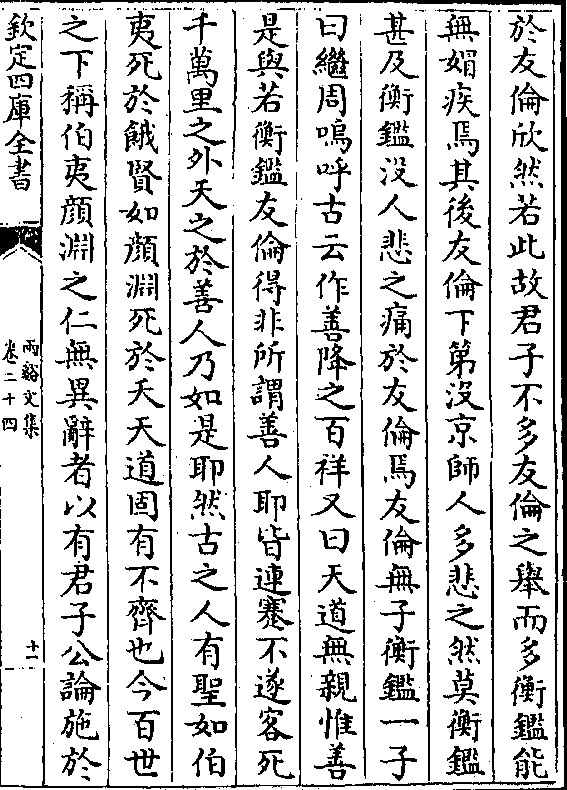 於友倫欣然若此故君子不多友倫之舉而多衡鑑能
無媢疾焉其後友倫下第没京師人多悲之然莫衡鑑
甚及衡鑑没人悲之痛於友倫焉友倫無子衡鑑一子
曰繼周嗚呼古云作善降之百祥又曰天道無親惟善
是與若衡鑑友倫得非所謂善人耶皆連蹇不遂客死
千萬里之外天之於善人乃如是耶然古之人有聖如伯
夷死於餓賢如顔淵死於夭天道固有不齊也今百世
之下稱伯夷顔淵之仁無異辭者以有君子公論施於
欽定四庫全書
兩谿文集
卷二十四
十一